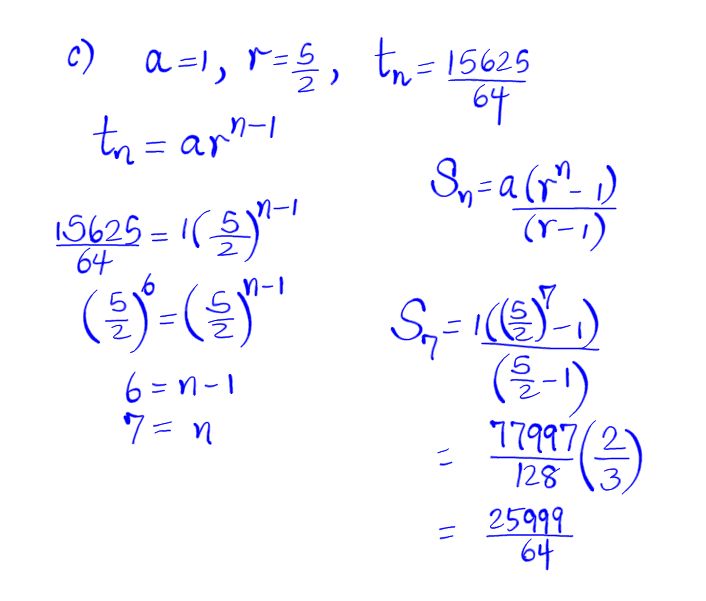 c) a = 1, r = 5/2, tₙ = 15625/64
tₙ = arⁿ⁻¹
15625/64 = 1(5/2)ⁿ⁻¹
(5/2)⁶ = (5/2)ⁿ⁻¹
6 = n - 1
7 = n
Sₙ = a(rⁿ - 1)/(r - 1)
S₇ = 1((5/2)⁷ - 1)/(5/2 - 1)
= 77997/128 (2/3)
= 25999/64